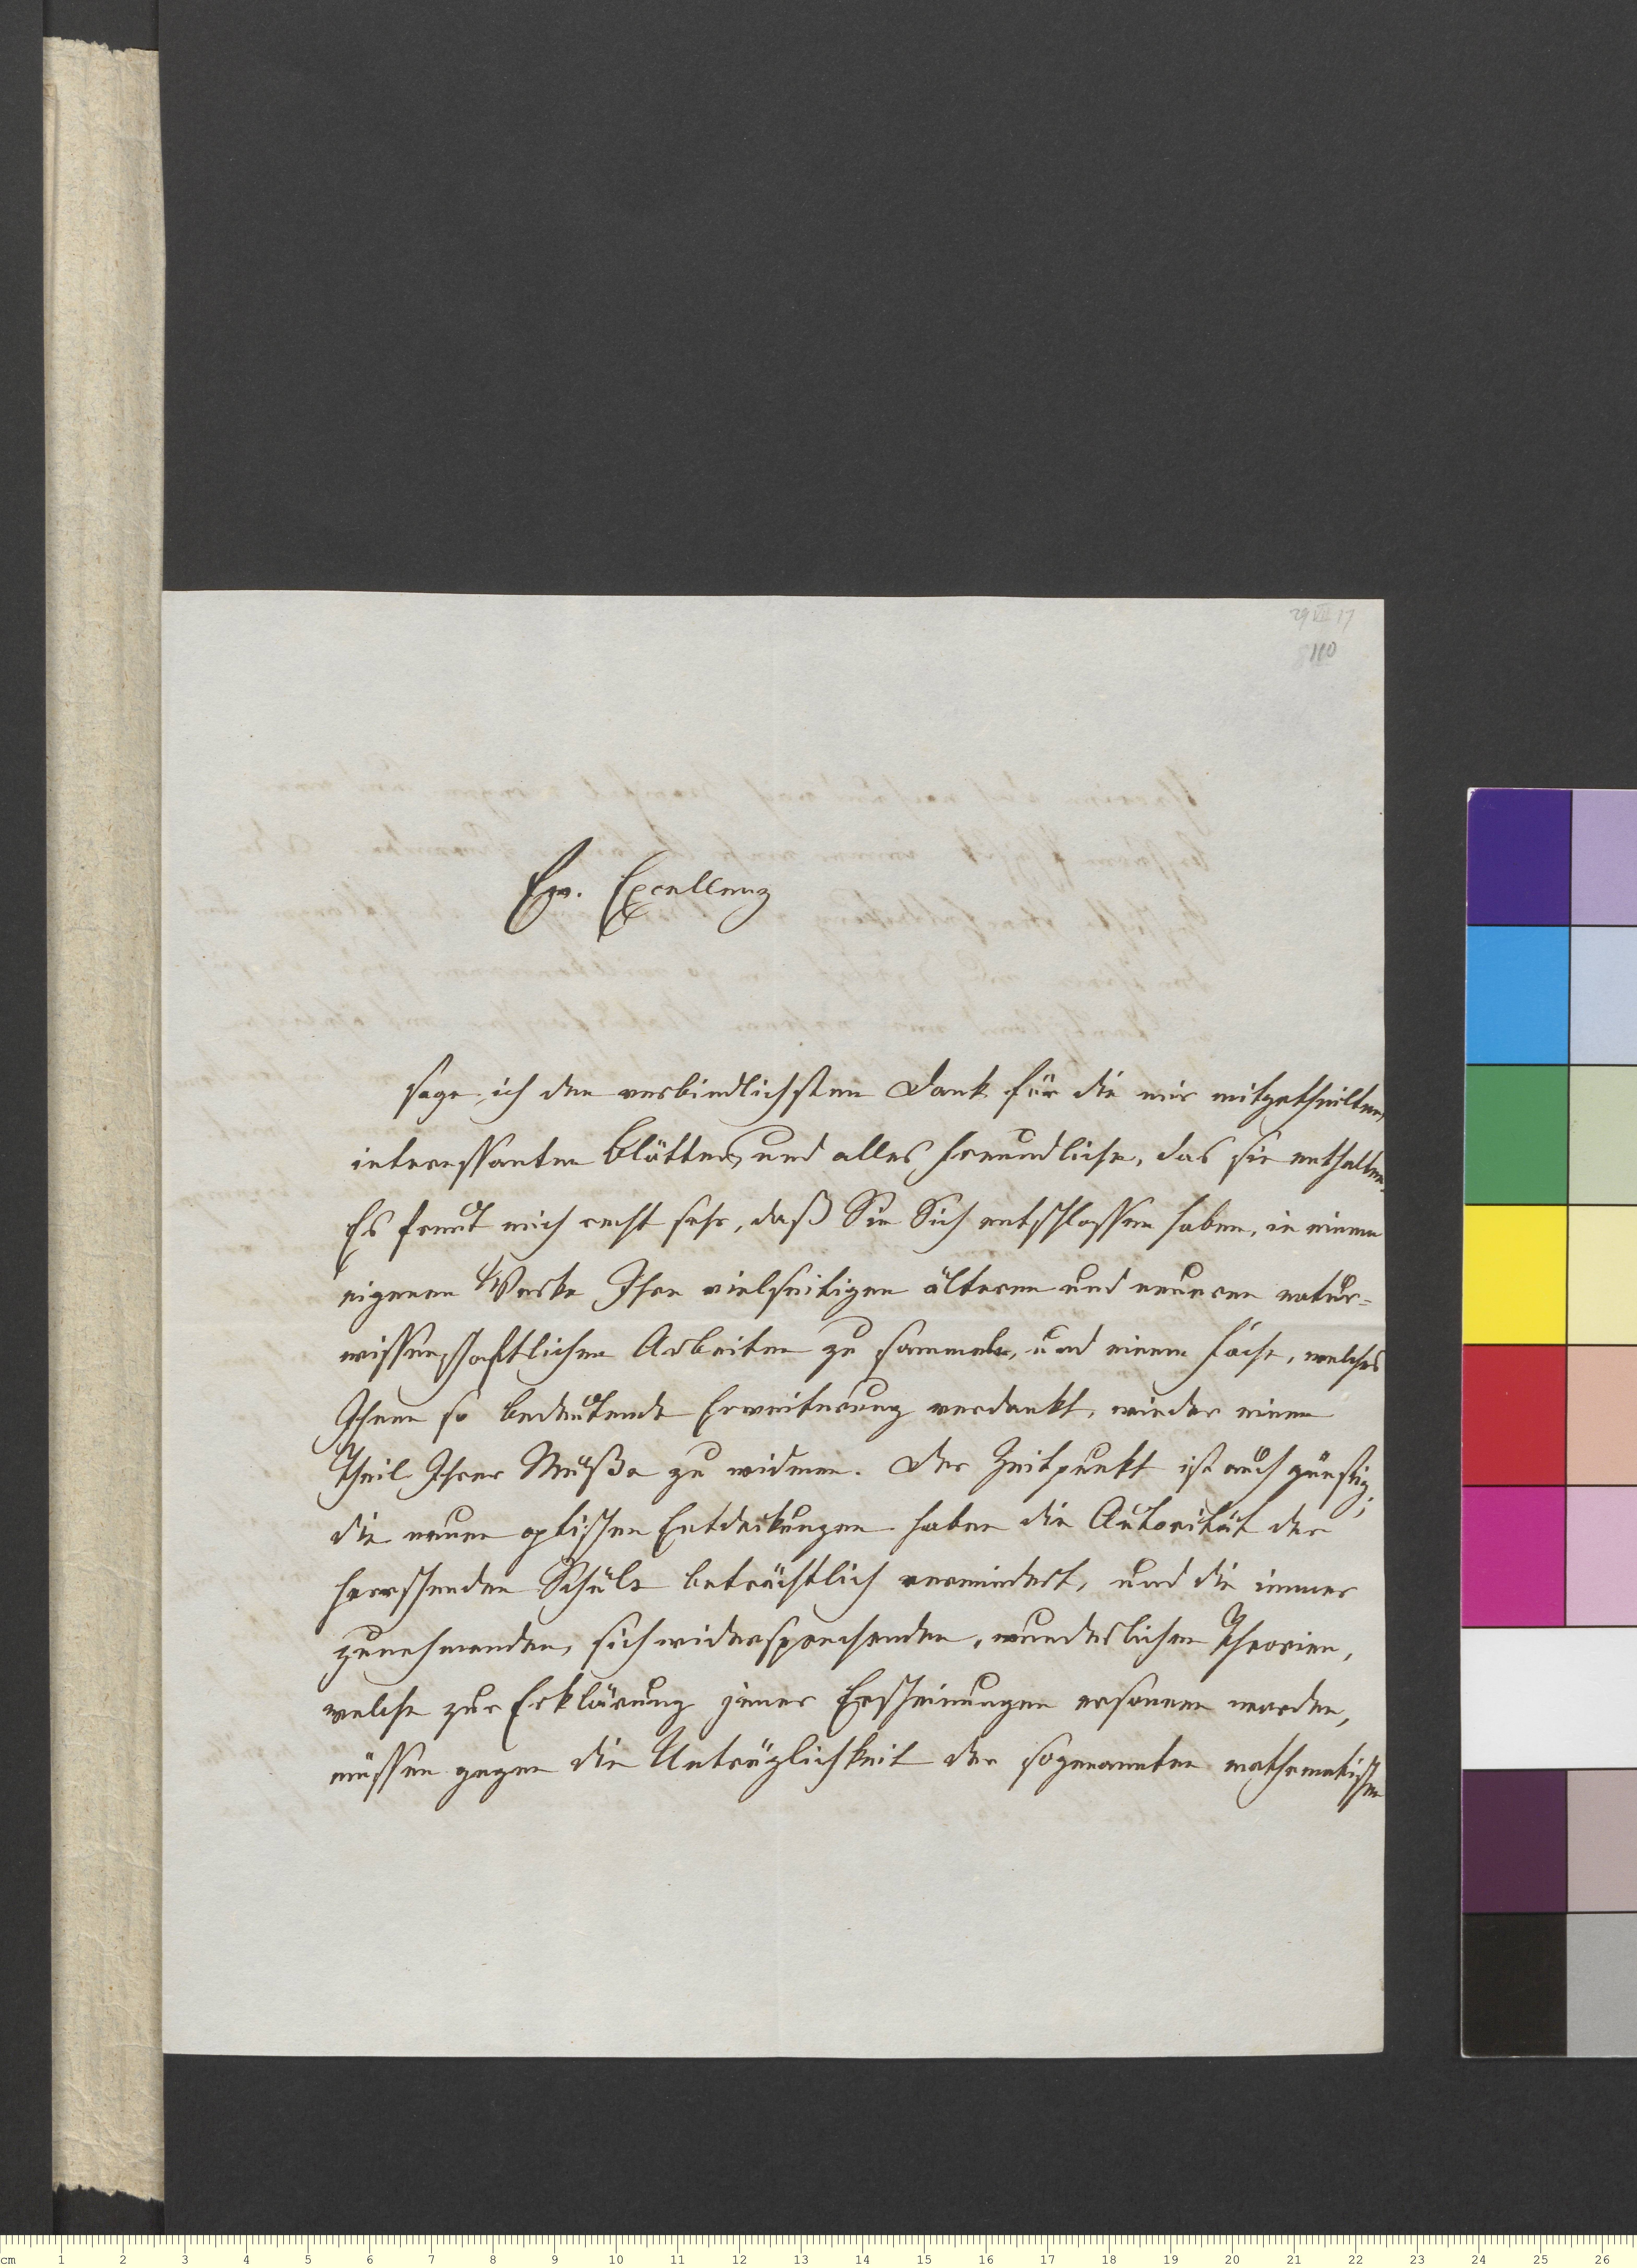 29 VII 17
110
Ew. Excellenz
sage ich den verbindlichsten Dank für die mir mitgetheilten,
interessanten Blätter, und alles Freundliche, das sie enthalten.
Es freut mich recht sehr, daß Sie Sich entschlossen haben, in einem
eigenen Werke Ihre vielseitigen älteren und neueren natur-
wissenschaftlichen Arbeiten zu sammeln, und einem Fache, welches
Ihnen so bedeutende Erweiterung verdankt, wieder einen
Theil Ihrer Muße zu widmen. Der Zeitpunkt ist auch günstig;
die neuen optischen Entdeckungen haben die Autorität der
herrschenden Schule beträchtlich vermindert, und die immer
zunehmenden, sich widersprechenden, wunderlichen Theorien,
welche zur Erklärung jener Erscheinungen ersonnen werden,
müssen gegen die Untrüglichkeit der sogenannten mathematischen